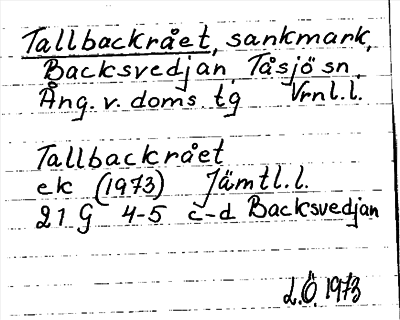 Tallbackrået, sankmark,
Backsvedjan, Tåsjö sn,
Ång. v. doms. tg Vrnl.l.
Tallbackrået
ek (1973) Jämtl.l.
21 G 4-5 c-d Backsvedjan
L.Ö. 1973